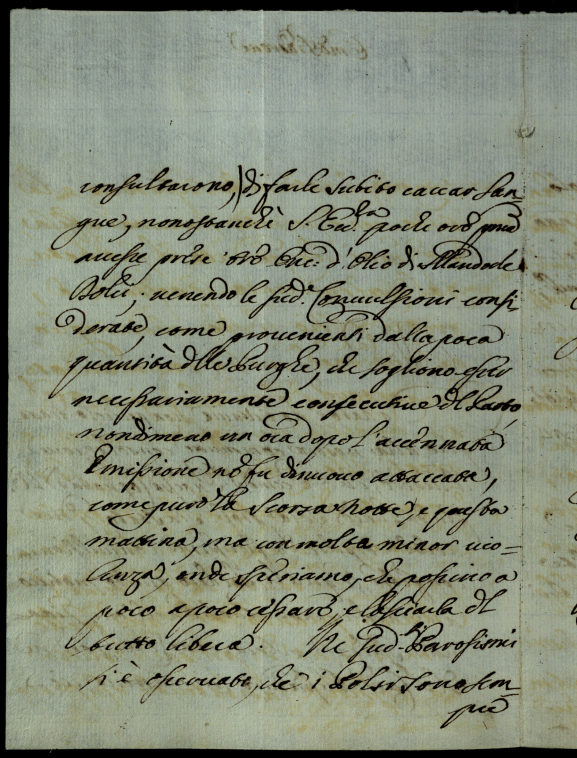 consultarono, di farle subito caccar San-
gue, nonostanche S. Ecc.za poche ore prima
avesse prese tre Onc: d'Olio di Mandorle
Dolci; venendo le sud.e Convulsioni consi-
derate, come provenienti dalla poca
quantità delle Purghe, che sogliono esser
necessariamente consecutive del Parto,
nondimeno un ora dopo l'accennata
Emissione ne fu di nuovo attaccata,
come pure la Scorsa Notte, e questa
mattina, ma con molta minor vio-
lenza, onde speriamo, che possino a
poco a poco cessare, e lasciarla del
tutto libera. Ne sud.i Parosismi
si è osservato, che i Polsi sono sem-
pre